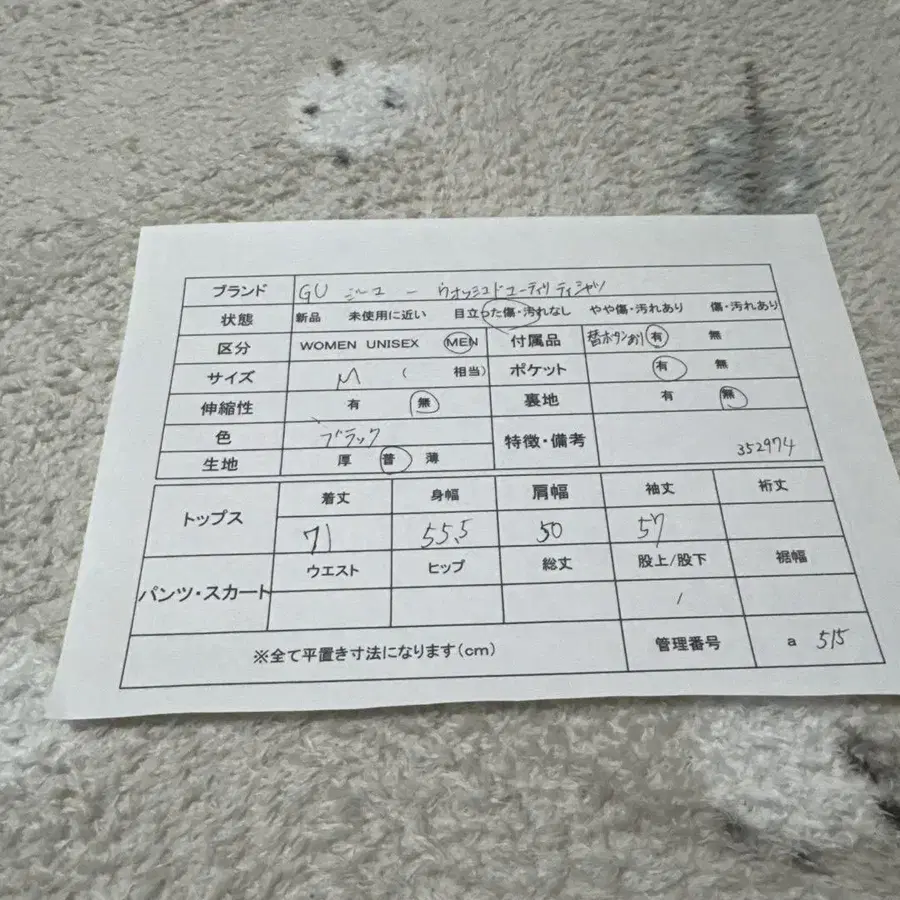 ブランド GU ジーユー ウオッシュドユーティリティシャツ
状態 新品 未使用に近い 目立った傷・汚れなし やや傷・汚れあり 傷・汚れあり
区分 WOMEN UNISEX MEN 付属品 替ボタンあり 有 無
サイズ M ( 相当) ポケット 有 無
伸縮性 有 無 裏地 有 無
色 ブラック 特徴・備考 352974
生地 厚 普 薄
トップス 着丈 身幅 肩幅 袖丈 裄丈
71 55.5 50 57
パンツ・スカート ウエスト ヒップ 総丈 股上/股下 裾幅
/
※全て平置き寸法になります(cm) 管理番号 a 515